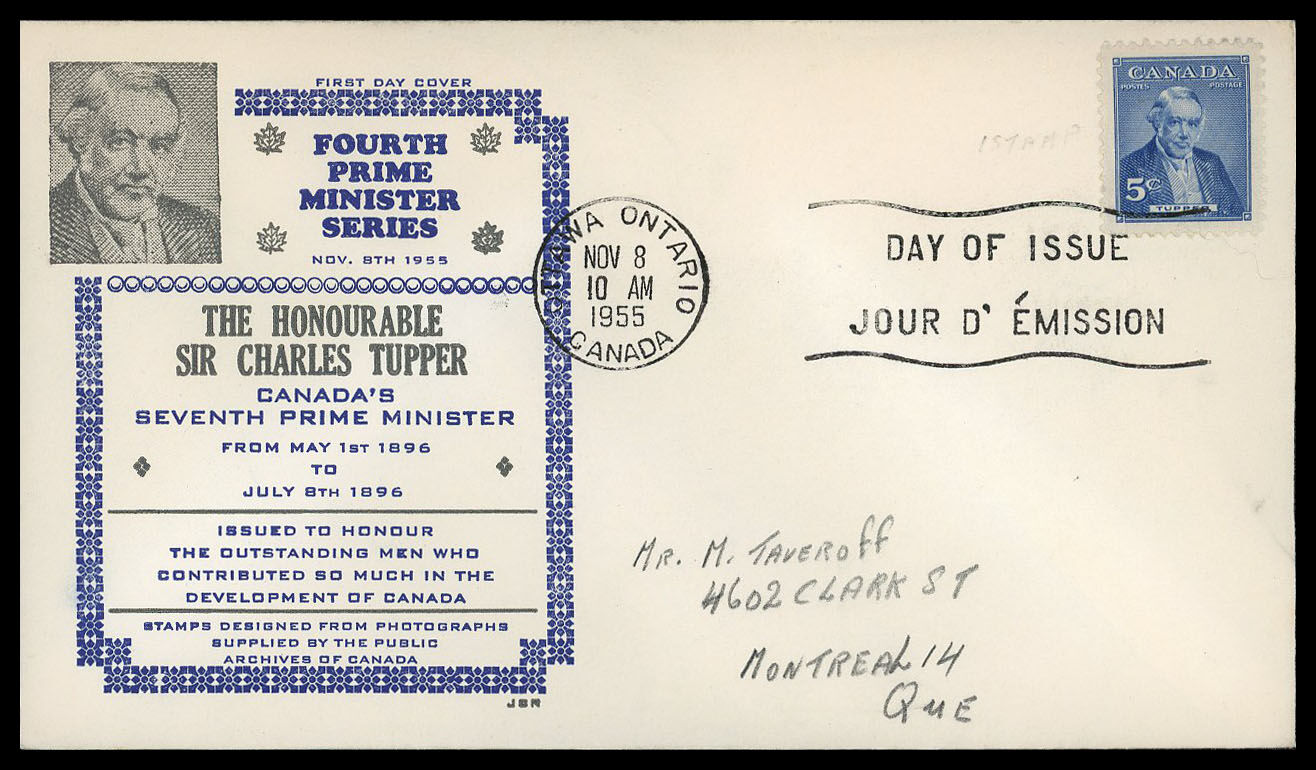 FIRST DAY COVER
FOURTH
PRIME
MINISTER
SERIES
NOV. 8TH 1955
THE HONOURABLE
SIR CHARLES TUPPER
CANADA'S
SEVENTH PRIME MINISTER
FROM MAY 1ST 1896
TO
JULY 8TH 1896
ISSUED TO HONOUR
THE OUTSTANDING MEN WHO
CONTRIBUTED SO MUCH IN THE
DEVELOPMENT OF CANADA
STAMPS DESIGNED FROM PHOTOGRAPHS
SUPPLIED BY THE PUBLIC
ARCHIVES OF CANADA
JBR
OTTAWA ONTARIO
NOV 8
10 AM
1955
CANADA
1 STAMP
CANADA
POSTES POSTAGE
5¢
TUPPER
DAY OF ISSUE
JOUR D' ÉMISSION
MR. M. TAVEROFF
4602 CLARK ST
MONTREAL 14
QUE